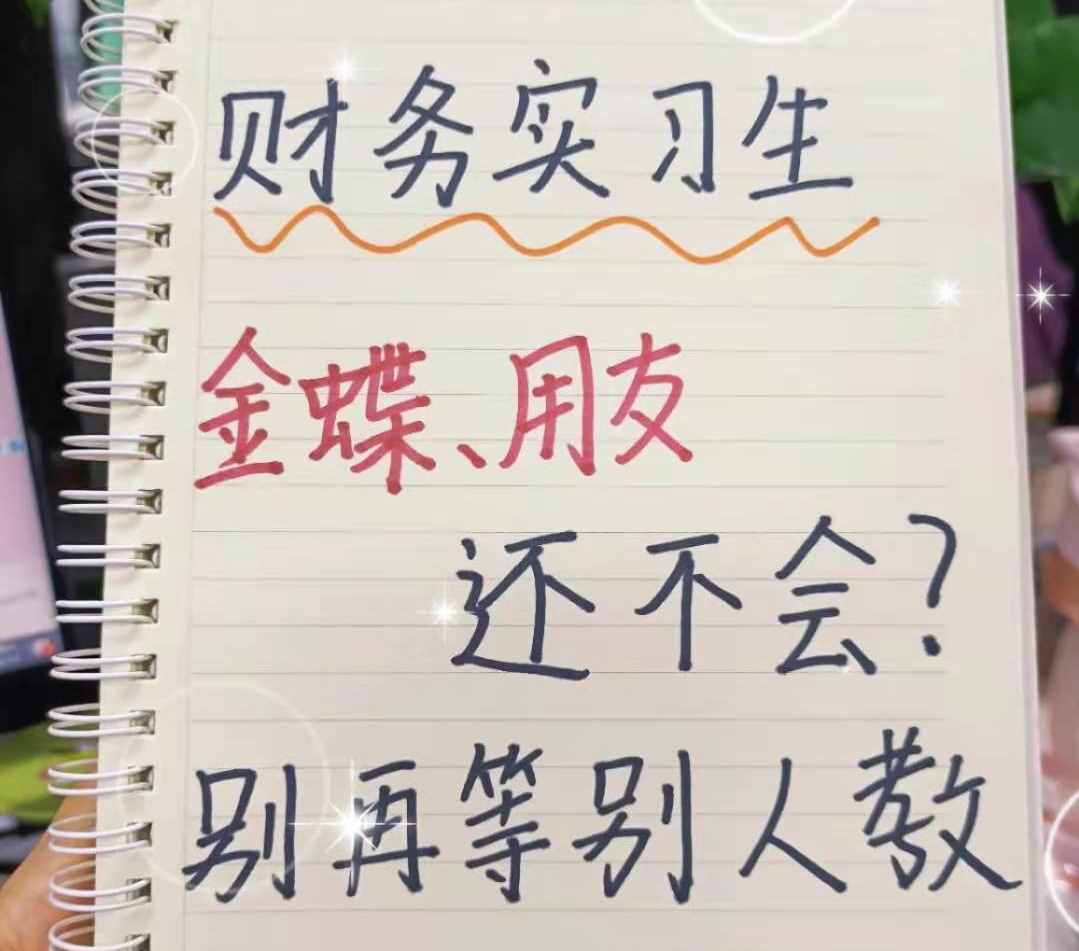 财务实习生
金蝶、用友
还不会?
别再等别人教